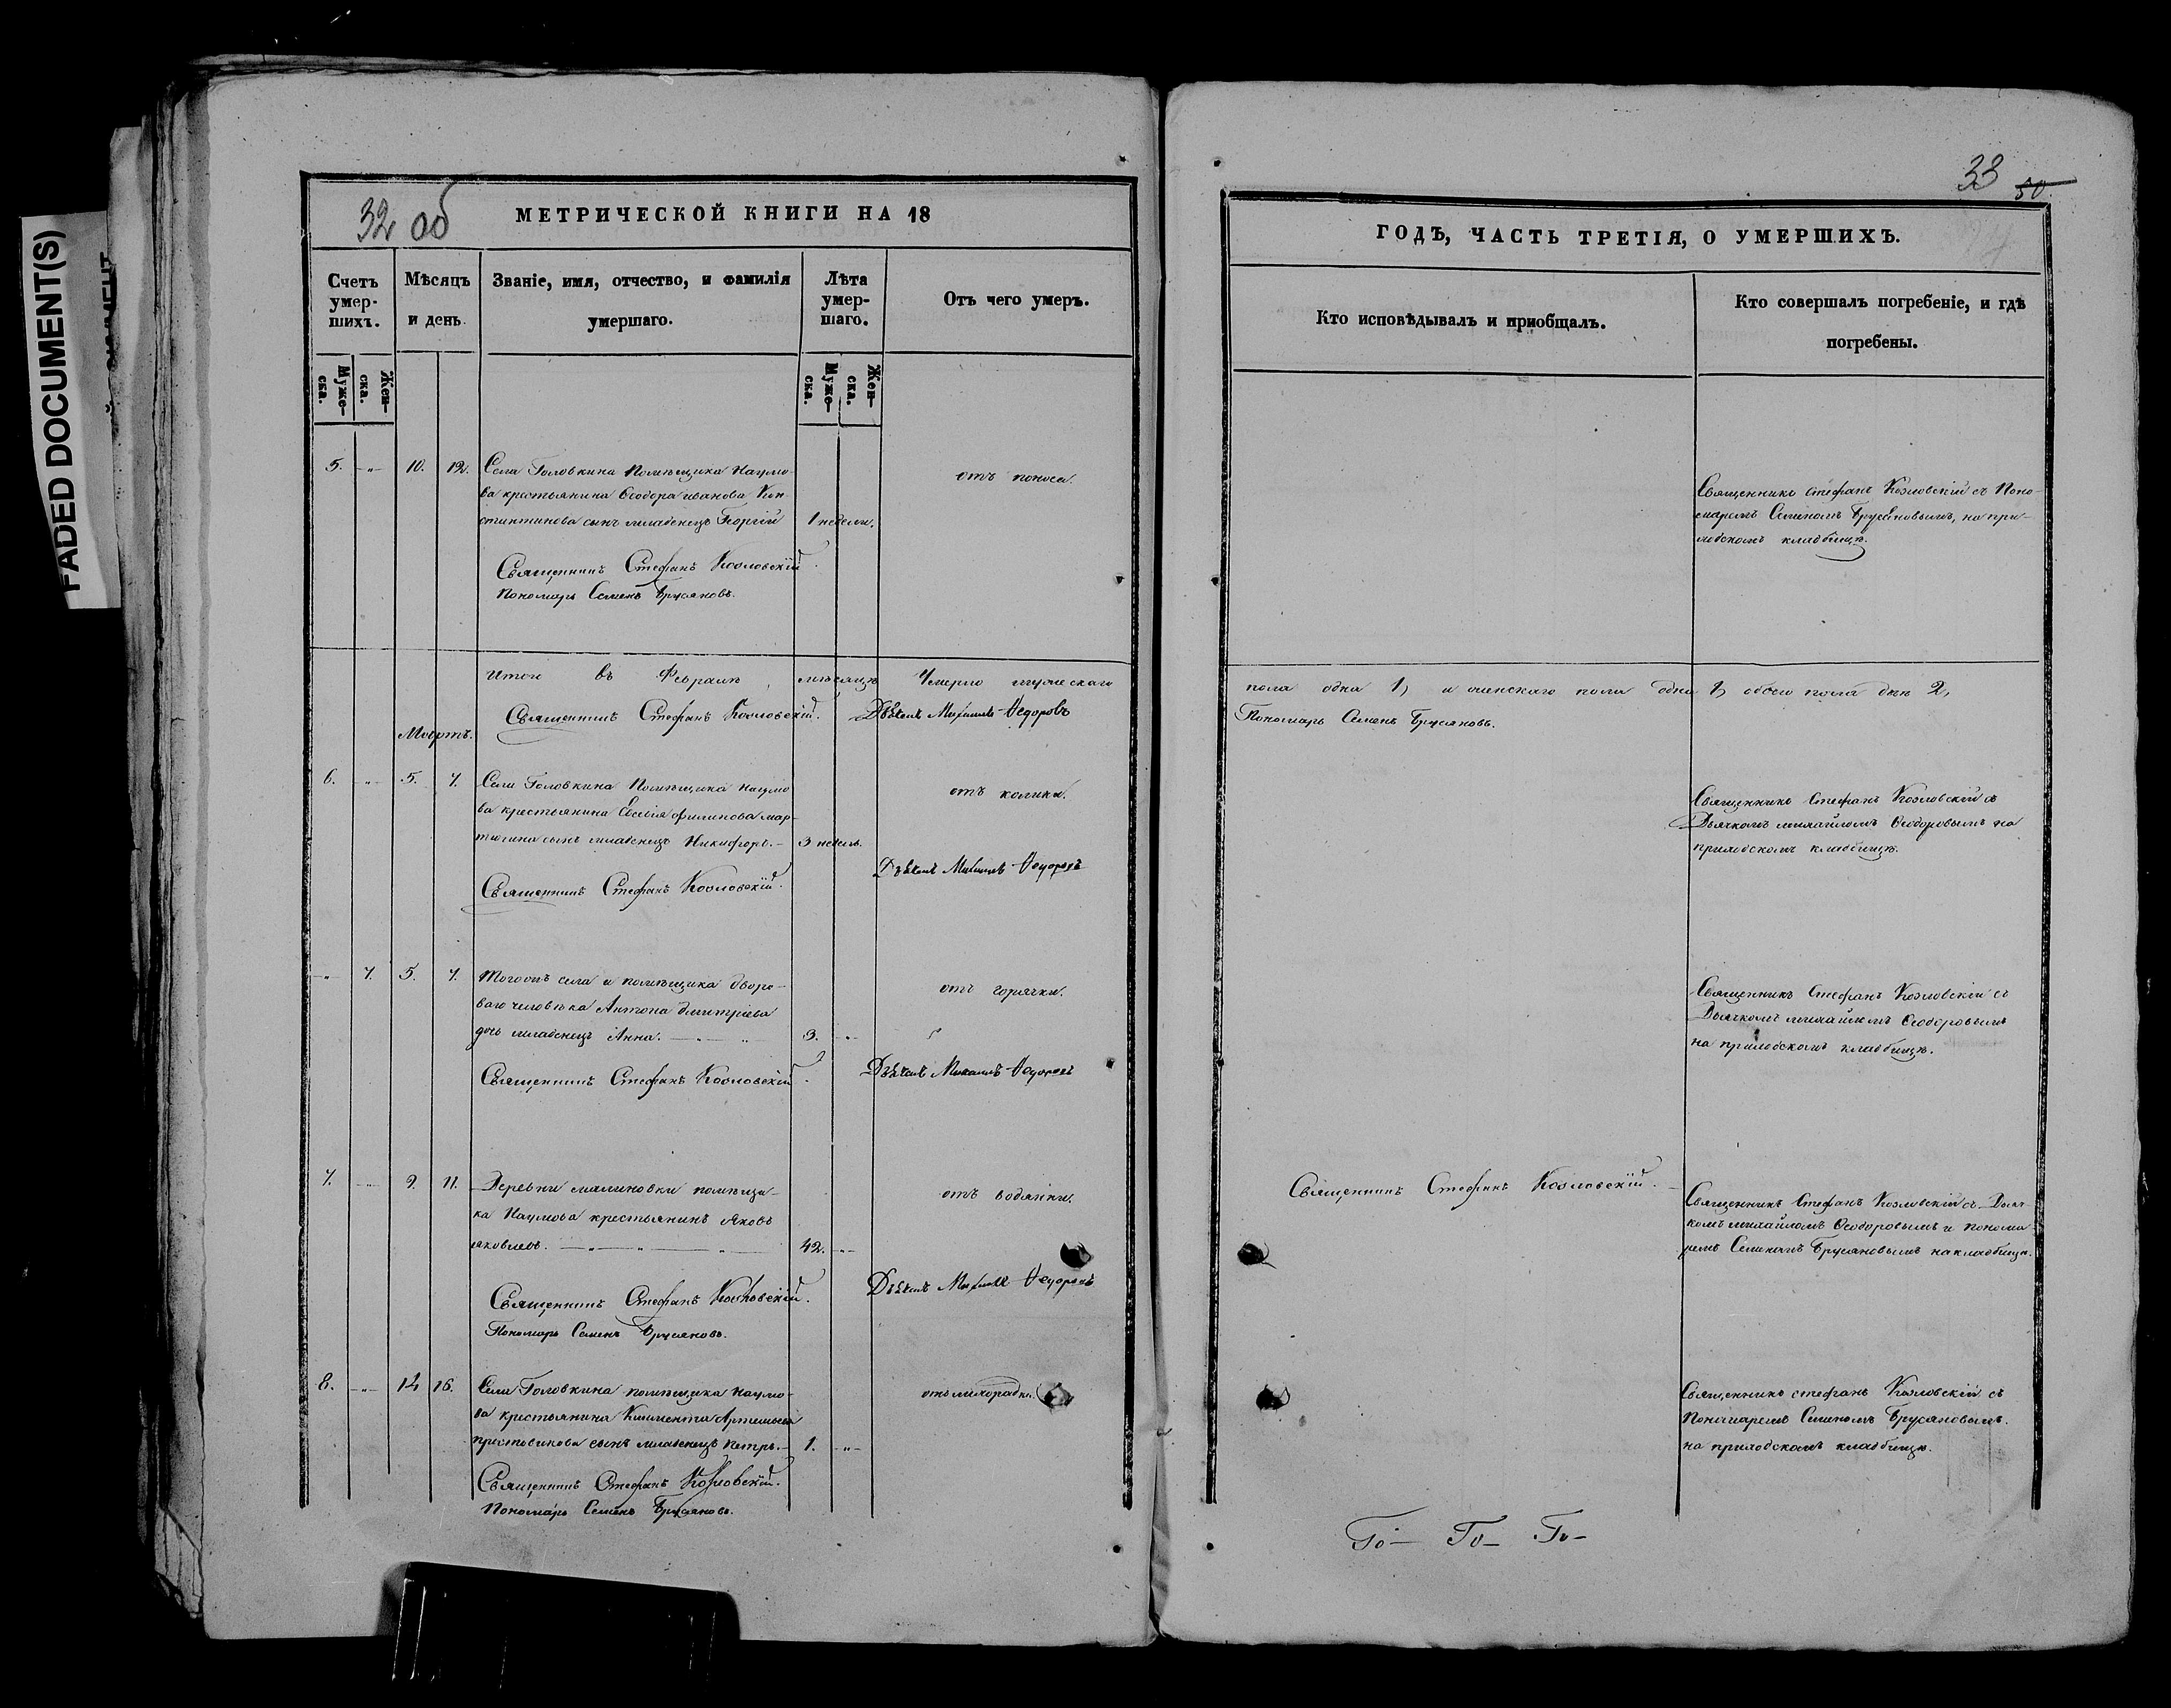 FADED DOCUMENT(S)
32 об
МЕТРИЧЕСКОЙ КНИГИ НА 18
Счетъ умер-шихъ.
Мѣсяцъ и день.
Званіе, имя, отчество, и фамилія умершаго.
Лѣта умер-шаго.
Отъ чего умеръ.
Муже-ска.
Жен-ска.
Муже-ска.
Жен-ска.
5. -„- 10. 12. Села Головкина Помѣщика Наумо-
ва крестьянина Ѳеодора иванова Кон-
стантинова сынъ младенецъ Георгій 1 недели.
отъ поноса.
Священникъ Стефанъ Козловскій.
Пономарь Семенъ Брусяновъ.
Итого въ Февралѣ мѣсяцѣ Умерло мужескаго
Священникъ Стефанъ Козловскій. Дьячекъ Михаилъ Ѳедоровъ
Мартъ.
6. -„- 5. 7. Села Головкина Помѣщика Наумо
ва крестьянина Евсевія филипова мар-
тюгина сынъ младенецъ Никифоръ.- 3 недель.
отъ колики.
Дьячекъ Михаилъ Ѳедоровъ
Священникъ Стефанъ Козловскій.
-„- 7. 5. 7. Тогожъ села и помѣщика дворо-
ваго человѣка Антона дмитріева
дочь младенецъ Анна. -„- -„- 3. -„-
отъ горячки.
Священникъ Стефанъ Козловскій. Дьячекъ Михаилъ Ѳедоровъ
7. -„- 9. 11. Деревни малиновки помѣщи-
ка Наумова крестьянинъ Яковъ
яковлевъ. -„- -„- -„- 42. -„-
отъ водянки.
Священникъ Стефанъ Козловскій. Дьячекъ Михаилъ Ѳедоровъ
Пономарь Семенъ Брусяновъ.
8. -„- 14 16. Села Головкина помѣщика Наумо-
ва крестьянина Климента Артемьева
сынъ младенецъ петръ.- 1. -„-
отъ лихорадки.
Священникъ Стефанъ Козловскій.
Пономарь Семенъ Брусяновъ.
33 50
ГОДЪ, ЧАСТЬ ТРЕТІЯ, О УМЕРШИХЪ.
Кто исповѣдывалъ и пріобщалъ.
Кто совершалъ погребеніе, и гдѣ погребены.
Священникъ Стефанъ Козловскій съ Поно-
маремъ Семеномъ Брусяновымъ, на при-
ходскомъ кладбищѣ.
пола одна 1, и женскаго пола одна 1, обоего пола два 2,
Пономарь Семенъ Брусяновъ.
Священникъ Стефанъ Козловскій съ
Дьячкомъ михайломъ Ѳеодоровымъ на
приходскомъ кладбищѣ.
Священникъ Стефанъ Козловскій съ
Дьячкомъ михайломъ Ѳеодоровымъ
на приходскомъ кладбищѣ.
Священникъ Стефанъ Козловскій.
Священникъ Стефанъ Козловскій съ Дьяч-
комъ михайломъ Ѳеодоровымъ и понома-
ремъ Семеномъ Брусяновымъ на кладбищѣ.
Священникъ стефанъ Козловскій съ
Пономаремъ Семеномъ Брусяновымъ.
на приходскомъ кладбищѣ.
Го- Го- Го-